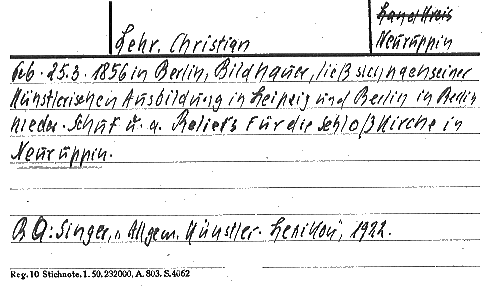 Landkreis
Lehr. Christian Neuruppin
Geb. 25.3. 1856 in Berlin, Bildhauer, ließ sich nach seiner
Künstlerischen Ausbildung in Leipzig und Berlin in Berlin
nieder. Schuf u. a. Reliefs für die Schloßkirche in
Neuruppin.
Q: Singer, „Allgem. Künstler-Lexikon", 1922.
Reg. 10 Stichnote. 1. 50. 232000, A. 803. S. 4062